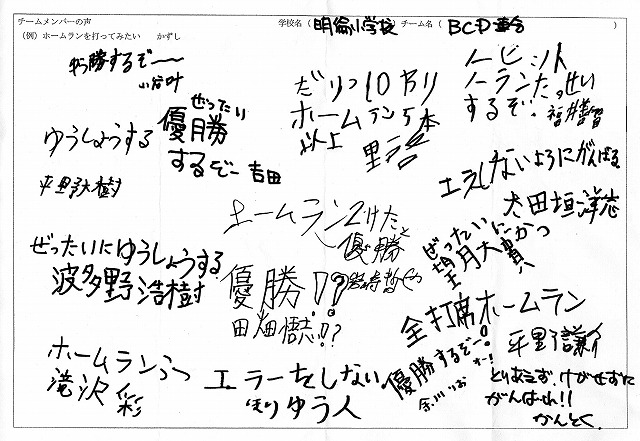 チームメンバーの声
学校名（明倫小学校）チーム名（BCD連合）
（例）ホームランを打ってみたい　かずし
勝するぞ〜
小谷叶
ぜったい
優勝
するぞー吉田
だりつ10わり
ホームラン5本
以上
ノーヒット
ノーランたっせい
するぞ。
ゆうしょうする
平野大樹
エラしないようにがんばる
大田垣洋志
ホームラン2けたと
優勝
ぜったいにかつ
望月大貴
ぜったいにゆうしょうする
波多野浩樹
優勝!?
田畑悟志!!?
全打席ホームラン
平野謙介
優勝するぞー!
ホームラン3つ
滝沢彩
エラーをしない
とりあえず、けがせずに
がんばれ!!
かんとく